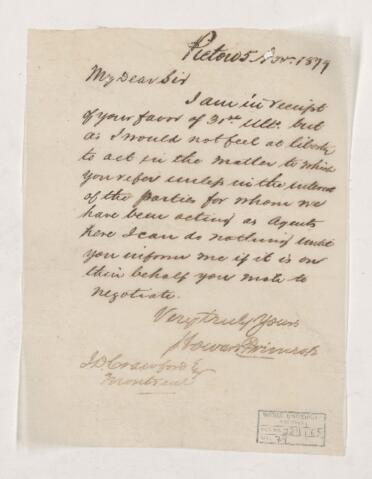 Pictou 5 Nov. 1879
My Dear Sir
I am in receipt
of your favor of 31st Ult. but
as I would not feel at liberty
to act in the matter to which
you refer unless in the interest
of the parties for whom we
have been acting as Agents
here I can do nothing until
you inform me if it is on
their behalf you wish to
negotiate.
Very truly Yours
Howard Primrose
J D Crawford Esq
Montreal